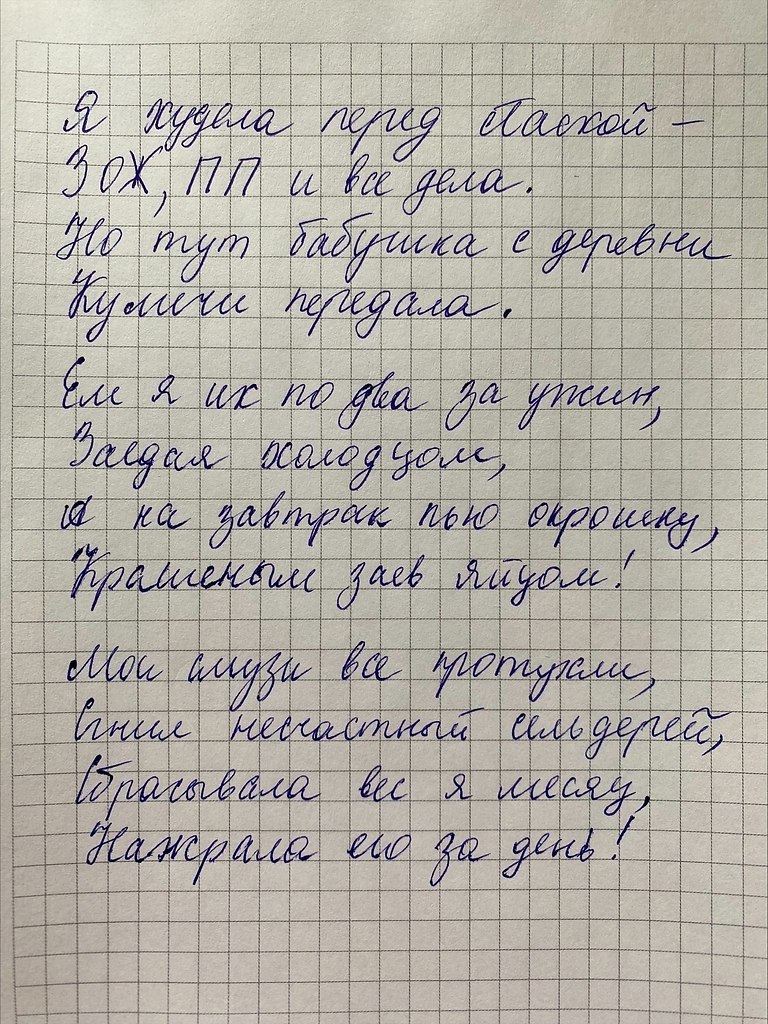 Я худела перед Пасхой –
ЗОЖ, ПП и все дела.
Но тут бабушка с деревни
Куличи передала.
Ем я их по два за ужин,
Заедая холодцом,
А на завтрак пью окрошку,
Крашеным заев яйцом!
Мои смузи все протухли,
Сгнил несчастный сельдерей,
Сбрасывала вес я месяц,
Нажрала его за день!